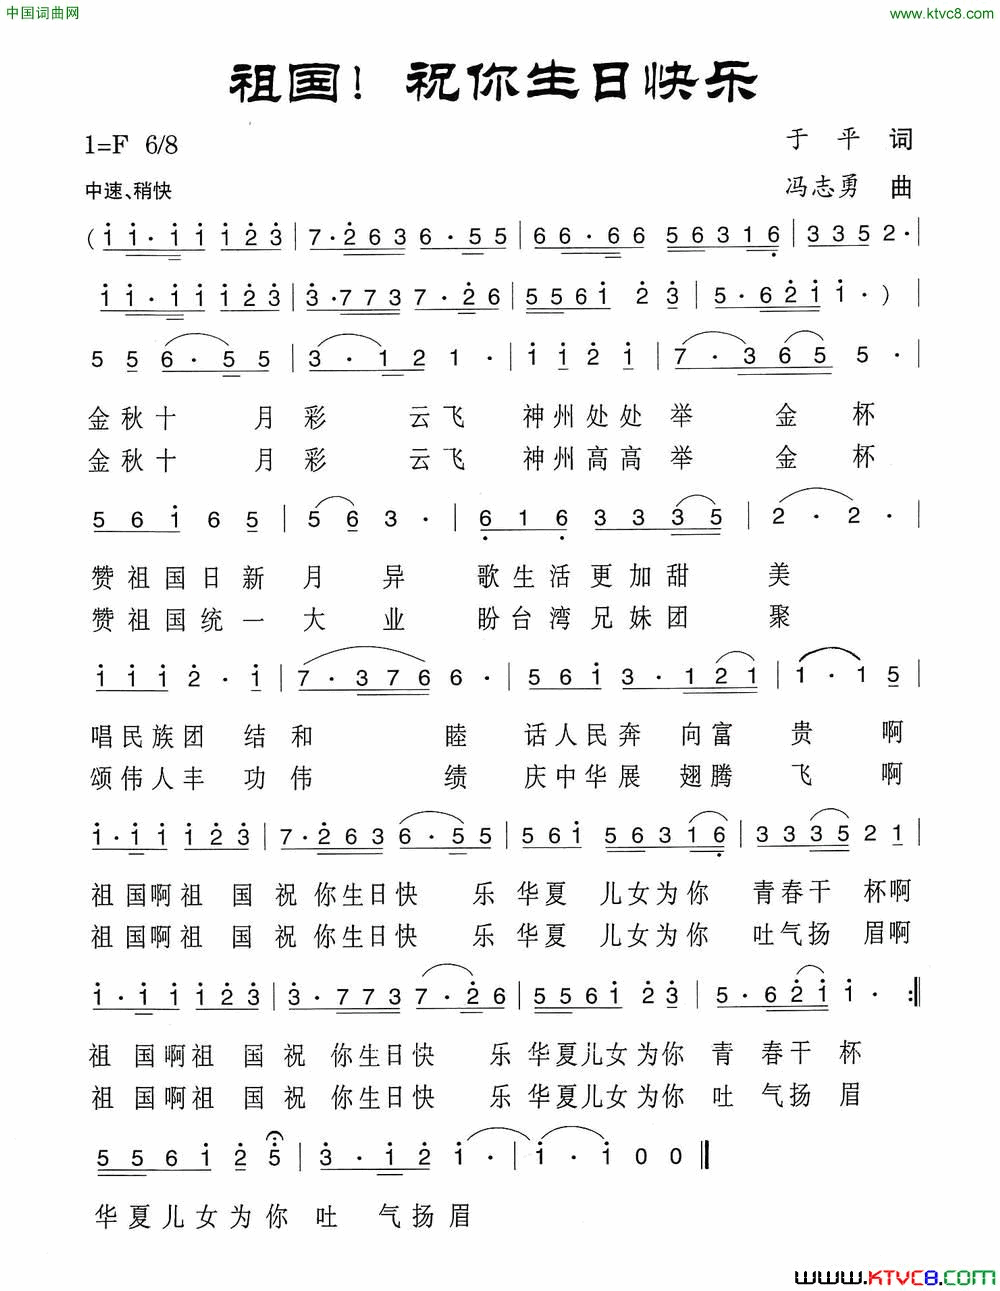 中国词曲网
www.ktvc8.com
祖国！祝你生日快乐
1=F 6/8
于平 词
中速、稍快
冯志勇 曲
( i i · i i i i 2 3 | 7 · 2 6 3 6 · 5 5 | 6 6 · 6 6 5 6 3 1 6 | 3 3 5 2 · |
i i · i i i i 2 3 | 3 · 7 7 3 7 · 2 6 | 5 5 6 i 2 3 | 5 · 6 2 i i · ) |
5 5 6 · 5 5 | 3 · 1 2 1 · | i i 2 i | 7 · 3 6 5 5 · |
金秋十 月彩 云飞 神州处处举 金 杯
金秋十 月彩 云飞 神州高高举 金 杯
5 6 i 6 5 | 5 6 3 · | 6 1 6 3 3 3 5 | 2 · 2 · |
赞祖国日新月异 歌生活更加甜 美
赞祖国统一大业 盼台湾兄妹团 聚
i i i 2 · i | 7 · 3 7 6 6 · | 5 6 i 3 · 1 2 1 | 1 · 1 5 |
唱民族团 结和 睦 话人民奔 向富 贵 啊
颂伟人丰 功伟 绩 庆中华展 翅腾 飞 啊
i · i i i 2 3 | 7 · 2 6 3 6 · 5 5 | 5 6 i 5 6 3 1 6 | 3 3 3 5 2 1 |
祖国啊祖 国祝 你生日快 乐 华夏 儿女为你 青春干 杯啊
祖国啊祖 国祝 你生日快 乐 华夏 儿女为你 吐气扬 眉啊
i · i i i 2 3 | 3 · 7 7 3 7 · 2 6 | 5 5 6 i 2 3 | 5 · 6 2 i i · :‖
祖 国啊祖 国祝 你生日快 乐 华夏儿女为你 青 春干 杯
祖 国啊祖 国祝 你生日快 乐 华夏儿女为你 吐 气扬 眉
5 5 6 i 2 5 | 3 · i 2 i · | i · i 0 0 ‖
华夏儿女为你 吐 气扬眉
www.KTVC8.com